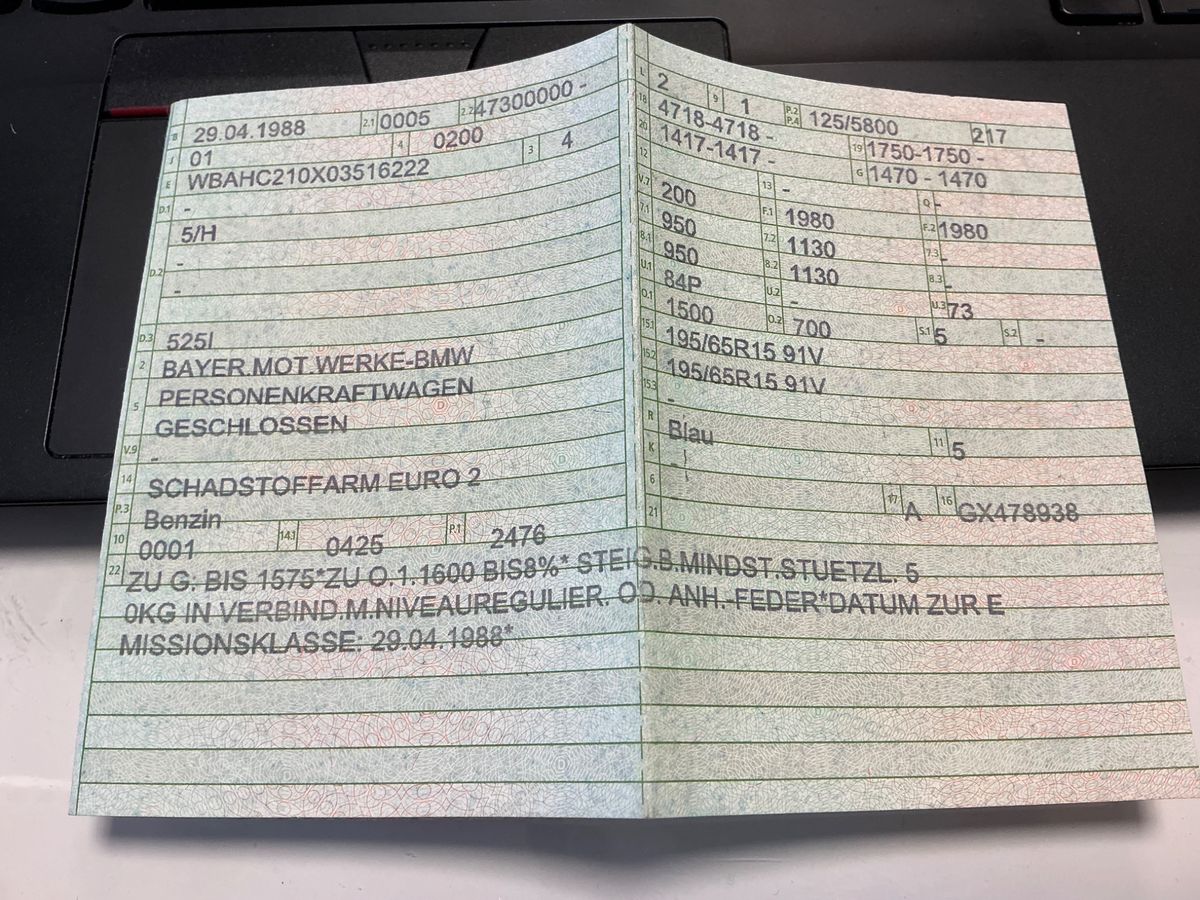 B 29.04.1988 2.1 0005 2.2 47300000 -
J 01 4 0200
E WBAHC210X03516222 3 4
D.1 -
5/H
D.2 -
-
D.3 525I
2 BAYER.MOT.WERKE-BMW
5 PERSONENKRAFTWAGEN
GESCHLOSSEN
V.9 -
14 SCHADSTOFFARM EURO 2
P.3 Benzin
10 0001 14.1 0425 P.1 2476
L 2 9 1 P.2 P.4 125/5800 217
18 4718-4718 - 19 1750-1750 -
20 1417-1417 - G 1470 - 1470
12 - 13 - Q -
V.7 200 F.1 1980 F.2 1980
7.1 950 7.2 1130 7.3 -
8.1 950 8.2 1130 8.3 -
U.1 84P U.2 - U.3 73
O.1 1500 O.2 700 S.1 5 S.2 -
15.1 195/65R15 91V
15.2 195/65R15 91V
15.3 -
R Blau 11 5
K -
6 - 17 A 16 GX478938
21
22 ZU G. BIS 1575*ZU O.1.1600 BIS8%* STEIG.B.MINDST.STUETZL. 5
0KG IN VERBIND.M.NIVEAUREGULIER. OD. ANH.-FEDER*DATUM ZUR E
MISSIONSKLASSE: 29.04.1988*